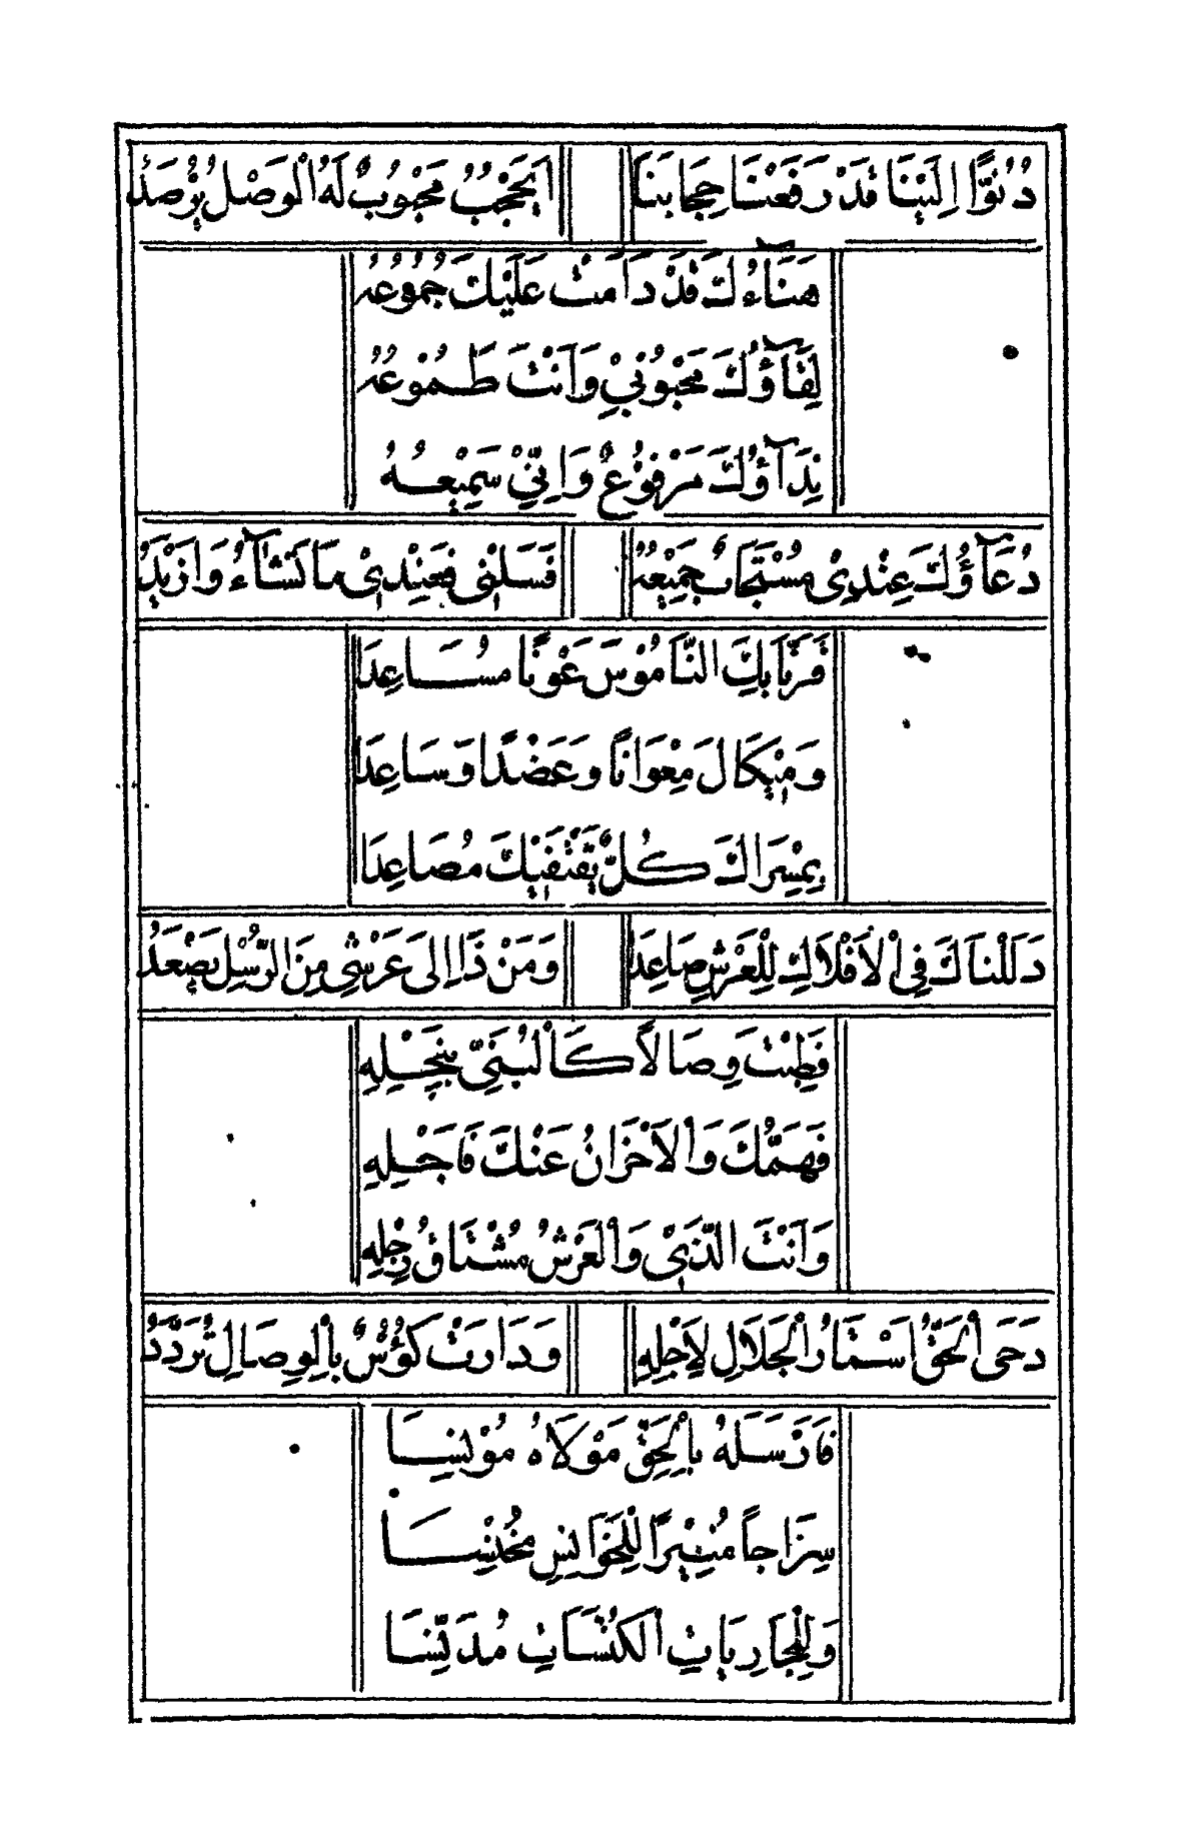 دُنُوًّا اِلَيْنَا قَدْ رَفَعْنَا حِجَابَنَا اَيُحْجَبُ مَحْبُوْبٌ لَهُ الْوَصْلُ يُرْصَدُ
هَنَآءُكَ قَدْ دَامَتْ عَلَيْكَ جُمُوْعُهُ
لِقَآؤُكَ مَحْبُوْبِيْ وَاَنْتَ طَمُوْعُهُ
نِدَآؤُكَ مَرْفُوْعٌ وَاِنِّيْ سَمِيْعُهُ
دُعَآؤُكَ عِنْدِىْ مُسْتَجَابٌ جَمِيْعُهُ فَسَلْنِى فَعِنْدِىْ مَا تَشَآءُ وَازْيَدُ
قَرَنَّا بِكَ النَّامُوْسَ عَوْنًا مُسَاعِدَا
وَمِيْكَالَ مِعْوَانًا وَعَضْدًا وَسَاعِدَا
بِمَسْرَاكَ كُلٌّ يَقْتَفِيْكَ مُصَاعِدَا
دَلَلْنَاكَ فِى اْلاَفْلاَكِ لِلْعَرْشِ صَاعِدَا وَمَنْ ذَا اِلىَ عَرْشِى مِنَ الرُّسْلِ يَصْعَدُ
فَطِبْتَ وِصَالاً كَالْبُنَيِّ بِنَجْلِهِ
فَهَمُّكَ وَاْلاَحْزَانُ عَنْكَ فَاَجْلِهِ
وَاَنْتَ الَّذِىْ وَالْعَرْشُ مُشْتَاقُ رِجْلِهِ
دَحَى الْحَقُّ اَسْتَارُ الْجَلاَلِ لِاَجْلِهِ وَدَارَتْ كَؤُسٌ بِالْوِصَالِ تُرَدَّدُ
فَاَرْسَلَهُ بِالْحَقِّ مَوْلاَهُ مُوْنِسَا
سِرَاجاً مُنِيْرًا لِلْخَوَانِسِ مُخْنِسَا
وَلِلْجَارِيَاتِ الْكُنَّسَاتِ مُدَنِّسَا